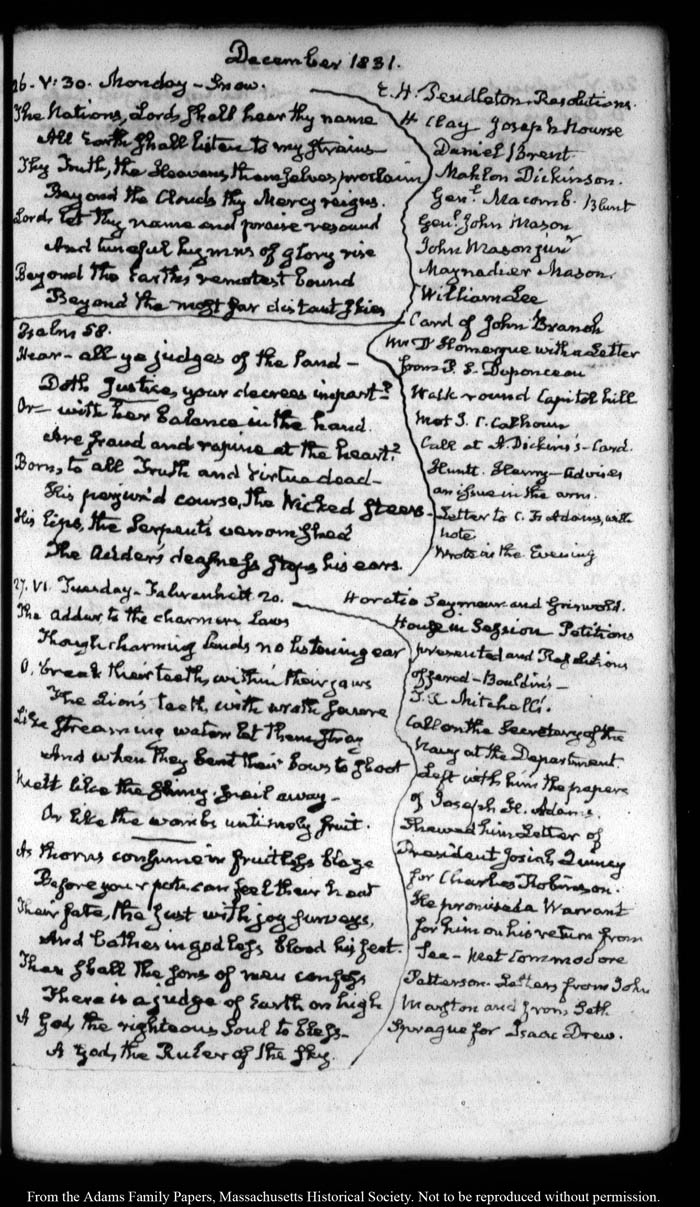 December 1831.
26. V: 30. Monday - Snow.
The Nations, Lord, shall hear thy name
All Earth shall listen to my strains
Thy Truth, the Heavens themselves, proclaim
Beyond the Clouds thy Mercy reigns.
Lord, let thy name and praise resound
And tuneful hymns of glory rise
Beyond the Earth's remotest bound
Beyond the most far distant skies
Psalm 58.
Hear - all ye judges of the land -
Doth Justice, your decrees impart?
Or - with her balance in the hand.
Are fraud and rapine at the heart?
Born, to all Truth and Virtue dead -
His perjur'd course, the Wicked steers -
His lips, the Serpent's venom shed
The Adder's deafness stops his ears.
E. H. Pendleton. Resolutions.
H Clay Joseph Nourse
Daniel Brent
Mahlon Dickinson.
Genl. Macomb. Blunt
Genl. John Mason
John Mason junr
Maynadier Mason.
William Lee
Card of John Branch
Mr D'Homergue with a Letter
from P. S. Duponceau
Walk round Capitol hill
Met J. C. Calhoun
Call at A. Dickins's - Card.
Huntt. Henry - Advises
an issue in the arm.
Letter to C. F. Adams, with
note
Wrote in the Evening
27. VI. Tuesday - Fahrenheit 20.
The adder to the charmers laws
Though charming lends no listening ear
O, break their teeth, within their jaws
The Lion's teeth, with wrath severe
Like streaming waters let them stray
And when they bend their bows to shoot
Melt like the slimy snail away -
Or like the wombs untimely fruit.
As thorns consume in fruitless blaze
Before your pots can feel their heat
Their fate, the just with joy surveys,
And bathes in godless blood his feet.
Then shall the sons of men confess
There is a judge of Earth on high
A God, the righteous soul to bless -
A God, the Ruler of the sky.
Horatio Seymour and Griswold.
House in Session Petitions
presented and Resolutions
offered - Bouldin's -
T. R. Mitchell's.
Call on the Secretary of the
Navy at the Department
Left with him the papers
of Joseph H. Adams.
Shewed him Letter of
President Josiah Quincy
for Charles Robinson.
He promised a Warrant
for him on his return from
Sea - Met Commodore
Patterson. Letters from John
Marston and from Seth
Sprague for Isaac Drew.
From the Adams Family Papers, Massachusetts Historical Society. Not to be reproduced without permission.